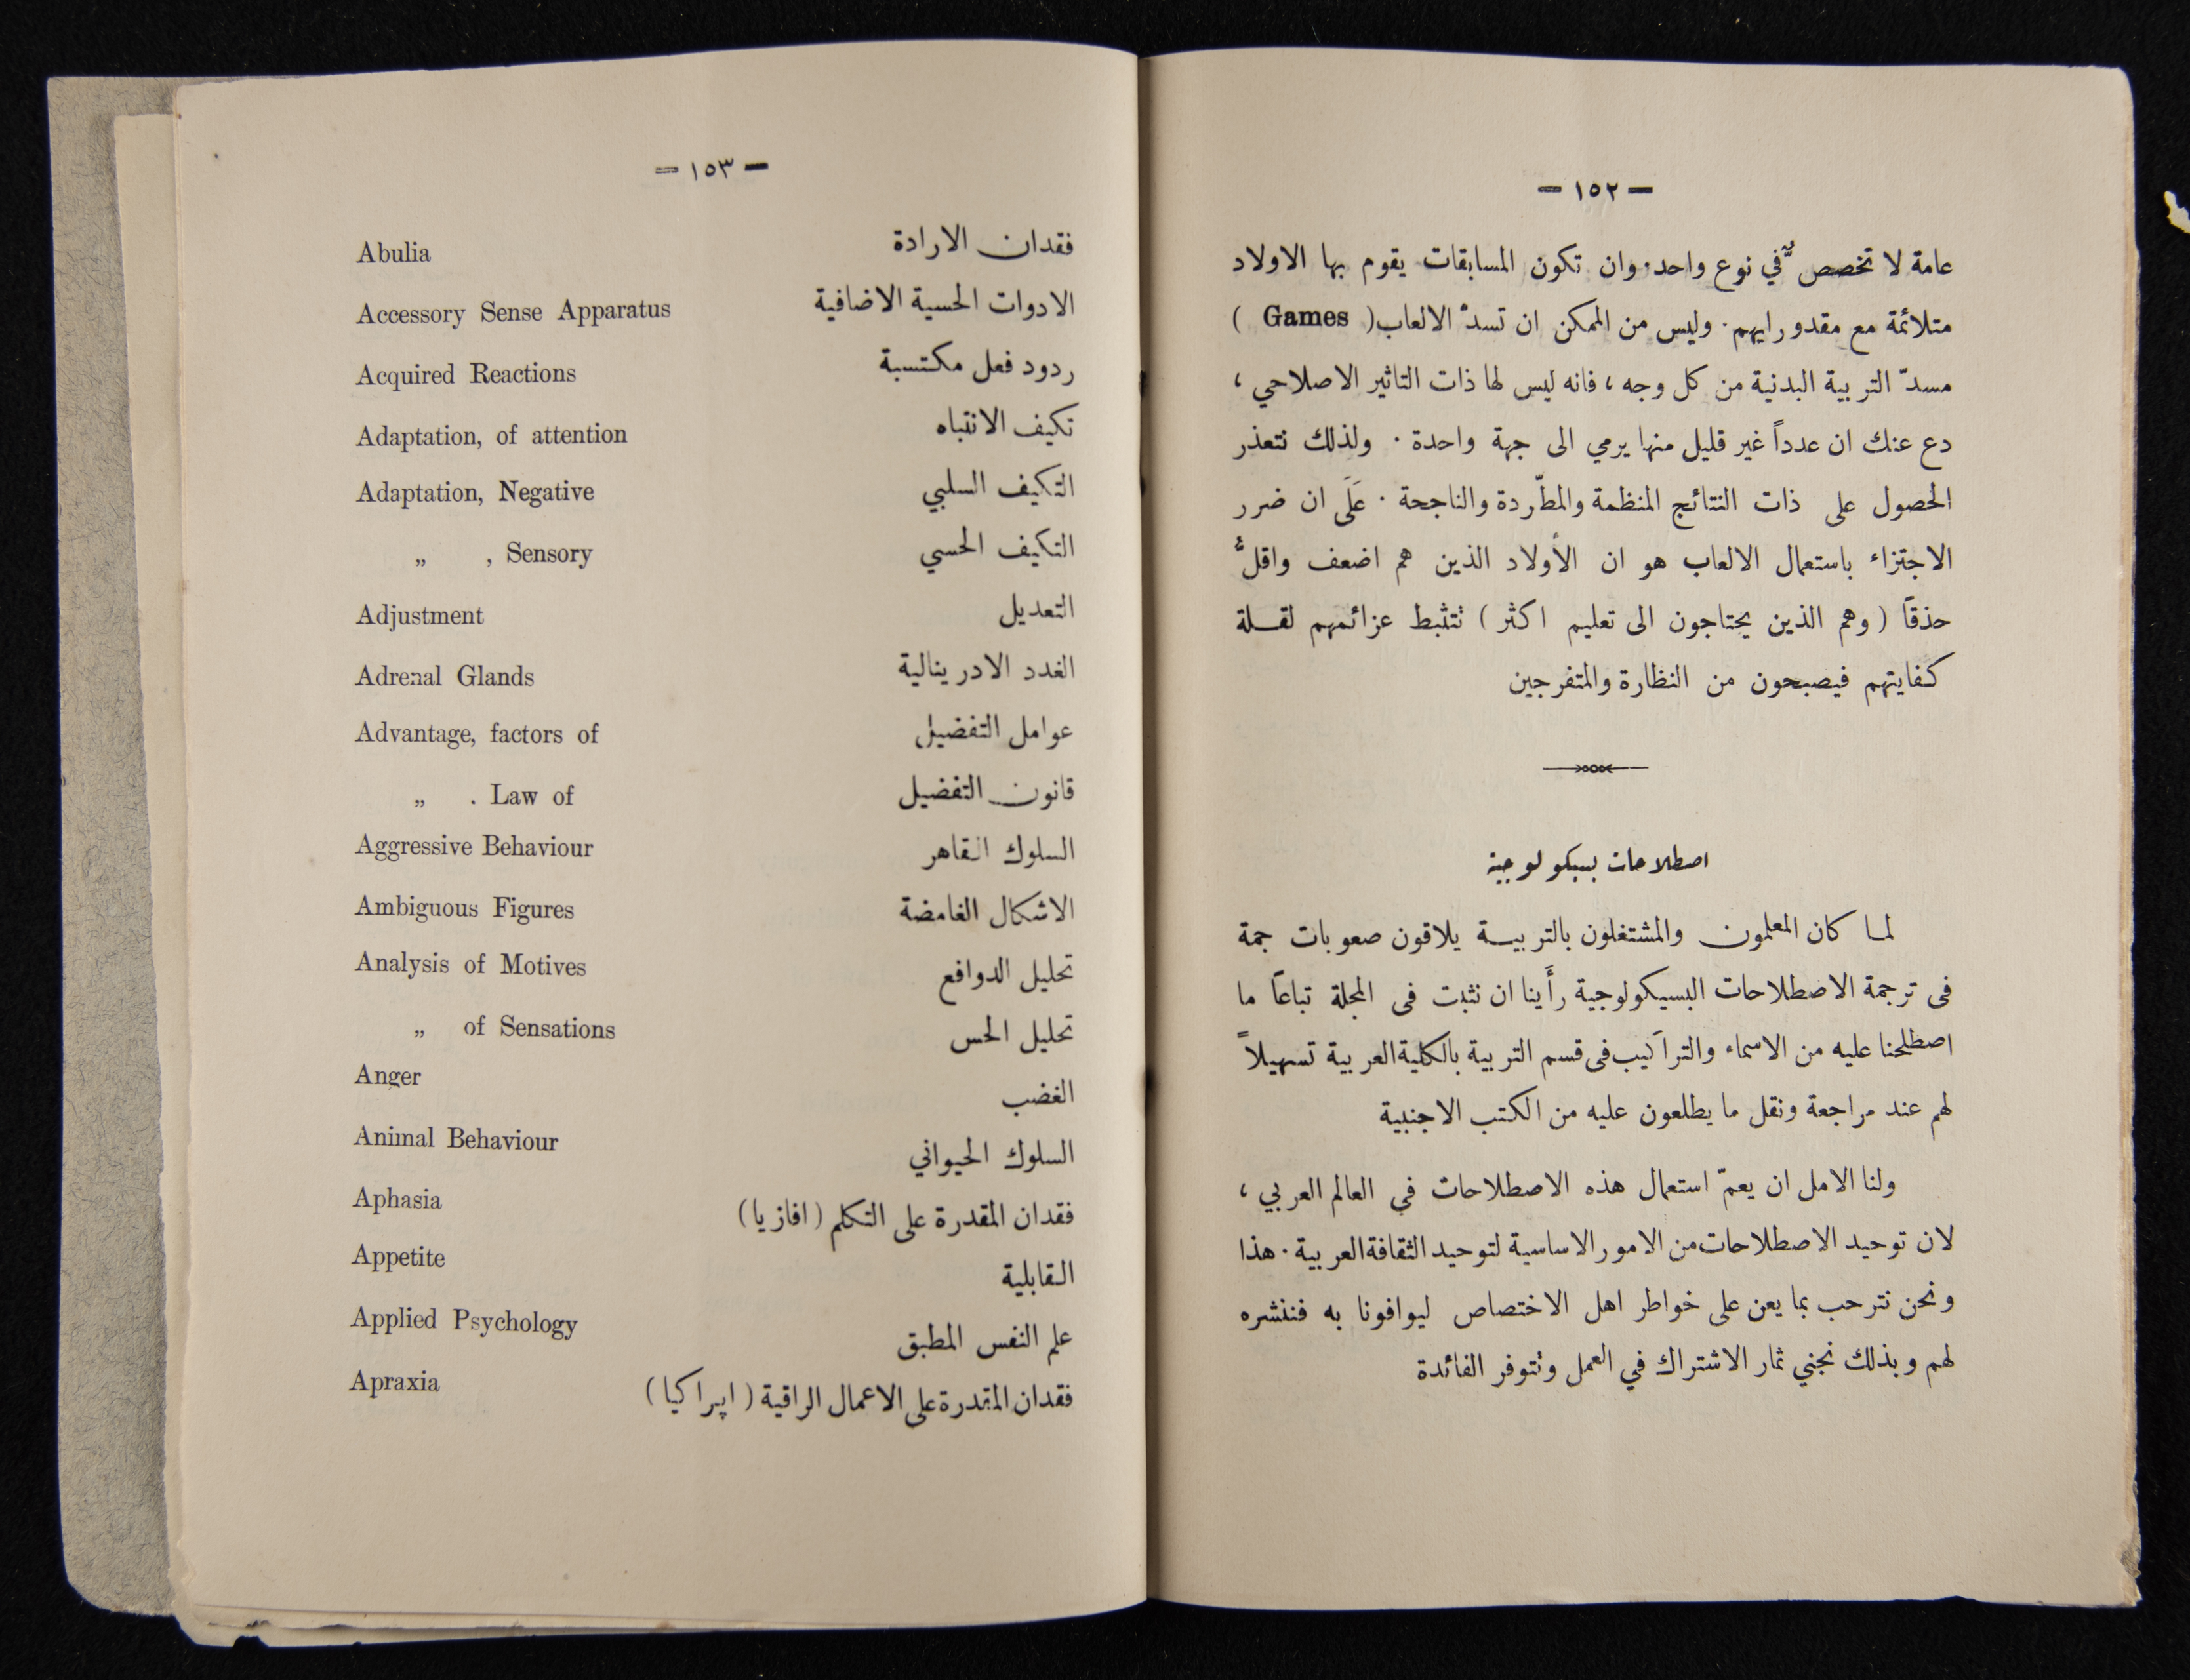 — ١٥٢ —
عامة لا تخصص في نوع واحد. وان تكون المسابقات يقوم بها الاولاد
متلائمة مع مقدورايهم. وليس من الممكن ان تسدّ الالعاب ( Games )
مسدّ التربية البدنية من كل وجه ، فانه ليس لها ذات التاثير الاصلاحي ،
دع عنك ان عدداً غير قليل منها يرمي الى جهة واحدة . ولذلك نتعذر
الحصول على ذات النتائج المنظمة والمطّردة والناجحة . عَلَى ان ضرر
الاجتزاء باستعمال الالعاب هو ان الأولاد الذين هم اضعف واقلُّ
حذقاً ( وهم الذين يحتاجون الى تعليم اكثر ) نتثبط عزائمهم لقلة
كفايتهم فيصبحون من النظارة والمتفرجين
اصطلاحات بسيكولوجية
لما كان المعلمون والمشتغلون بالتربية يلاقون صعوبات جمة
فى ترجمة الاصطلاحات البسيكولوجية رأَينا ان نثبت فى المجلة تباعاً ما
اصطلحنا عليه من الاسماء والتراكيب فى قسم التربية بالكلية العربية تسهيلاً
لهم عند مراجعة ونقل ما يطلعون عليه من الكتب الاجنبية
ولنا الامل ان يعمّ استعمال هذه الاصطلاحات في العالم العربي ،
لان توحيد الاصطلاحات من الامور الاساسية لتوحيد الثقافة العربية . هذا
ونحن نترحب بما يعن على خواطر اهل الاختصاص ليوافونا به فننشره
لهم وبذلك نجني ثمار الاشتراك في العمل ونتوفر الفائدة
— ١٥٣ —
Abulia فقدان الارادة
Accessory Sense Apparatus الادوات الحسية الاضافية
Acquired Reactions ردود فعل مكتسبة
Adaptation, of attention تكيف الانتباه
Adaptation, Negative التكيف السلبي
„ , Sensory التكيف الحسي
Adjustment التعديل
Adrenal Glands الغدد الادرينالية
Advantage, factors of عوامل التفضيل
„ . Law of قانون التفضيل
Aggressive Behaviour السلوك القاهر
Ambiguous Figures الاشكال الغامضة
Analysis of Motives تحليل الدوافع
„ of Sensations تحليل الحس
Anger الغضب
Animal Behaviour السلوك الحيواني
Aphasia فقدان المقدرة على التكلم ( افازيا )
Appetite القابلية
Applied Psychology علم النفس المطبق
Apraxia فقدان المقدرة على الاعمال الراقية ( اپراكيا )